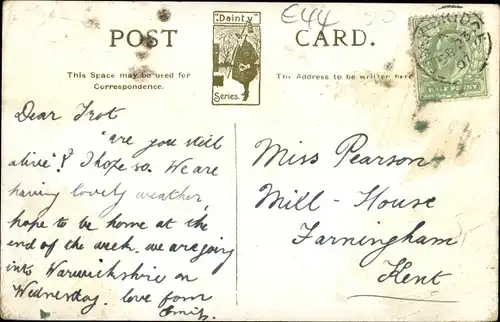 POST
"Dainty"
Series.
CARD.
E44
This Space may be used for
Correspondence.
The Address to be written here
HALFPENNY
Dear Trot
"are you still
alive"? I hope so. We are
having lovely weather,
hope to be home at the
end of the week. we are going
into Warwickshire on
Wednesday. love from
Emily.
Miss Pearson
Mill-House
Farningham
Kent